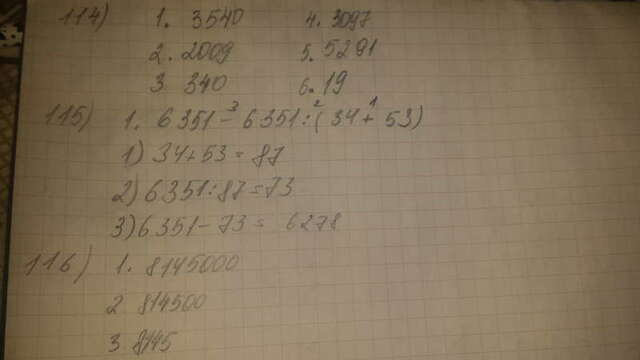 114) 1. 3540 4. 3097
2. 2009 5. 5291
3 340 6. 19
115) 1. 6351 - 6351 : ( 34 + 53)
3 2 1
1) 34+53 = 87
2) 6351 : 87 = 73
3) 6351 - 73 = 6278
116) 1. 8145000
2 814500
3 8145